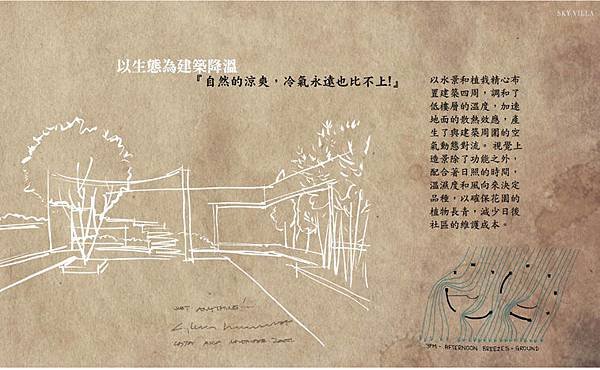 SKY VILLA
以生態為建築降溫
『自然的涼爽，冷氣永遠也比不上!』
以水景和植栽精心布
置建築四周，調和了
低樓層的溫度，加速
地面的散熱效應，產
生了與建築周圍的空
氣動態對流。視覺上
造景除了功能之外，
配合著日照的時間，
溫濕度和風向來決定
品種，以確保花園的
植物長青，減少日後
社區的維護成本。
JUST ANYTHING!
3PM - AFTERNOON BREEZES - GROUND